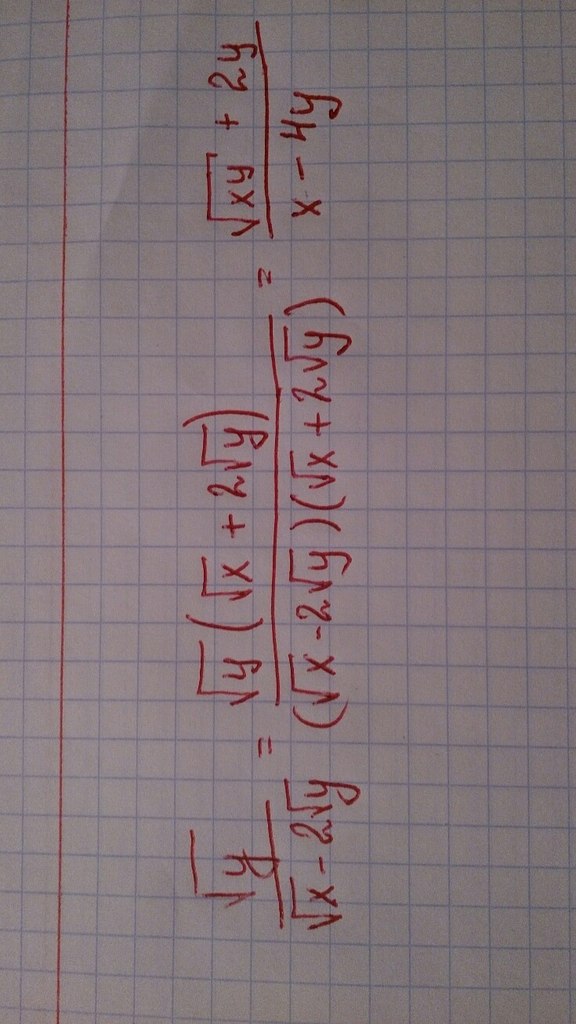 √y / (√x - 2√y) = √y (√x + 2√y) / ((√x - 2√y)(√x + 2√y)) = (√xy + 2y) / (x - 4y)